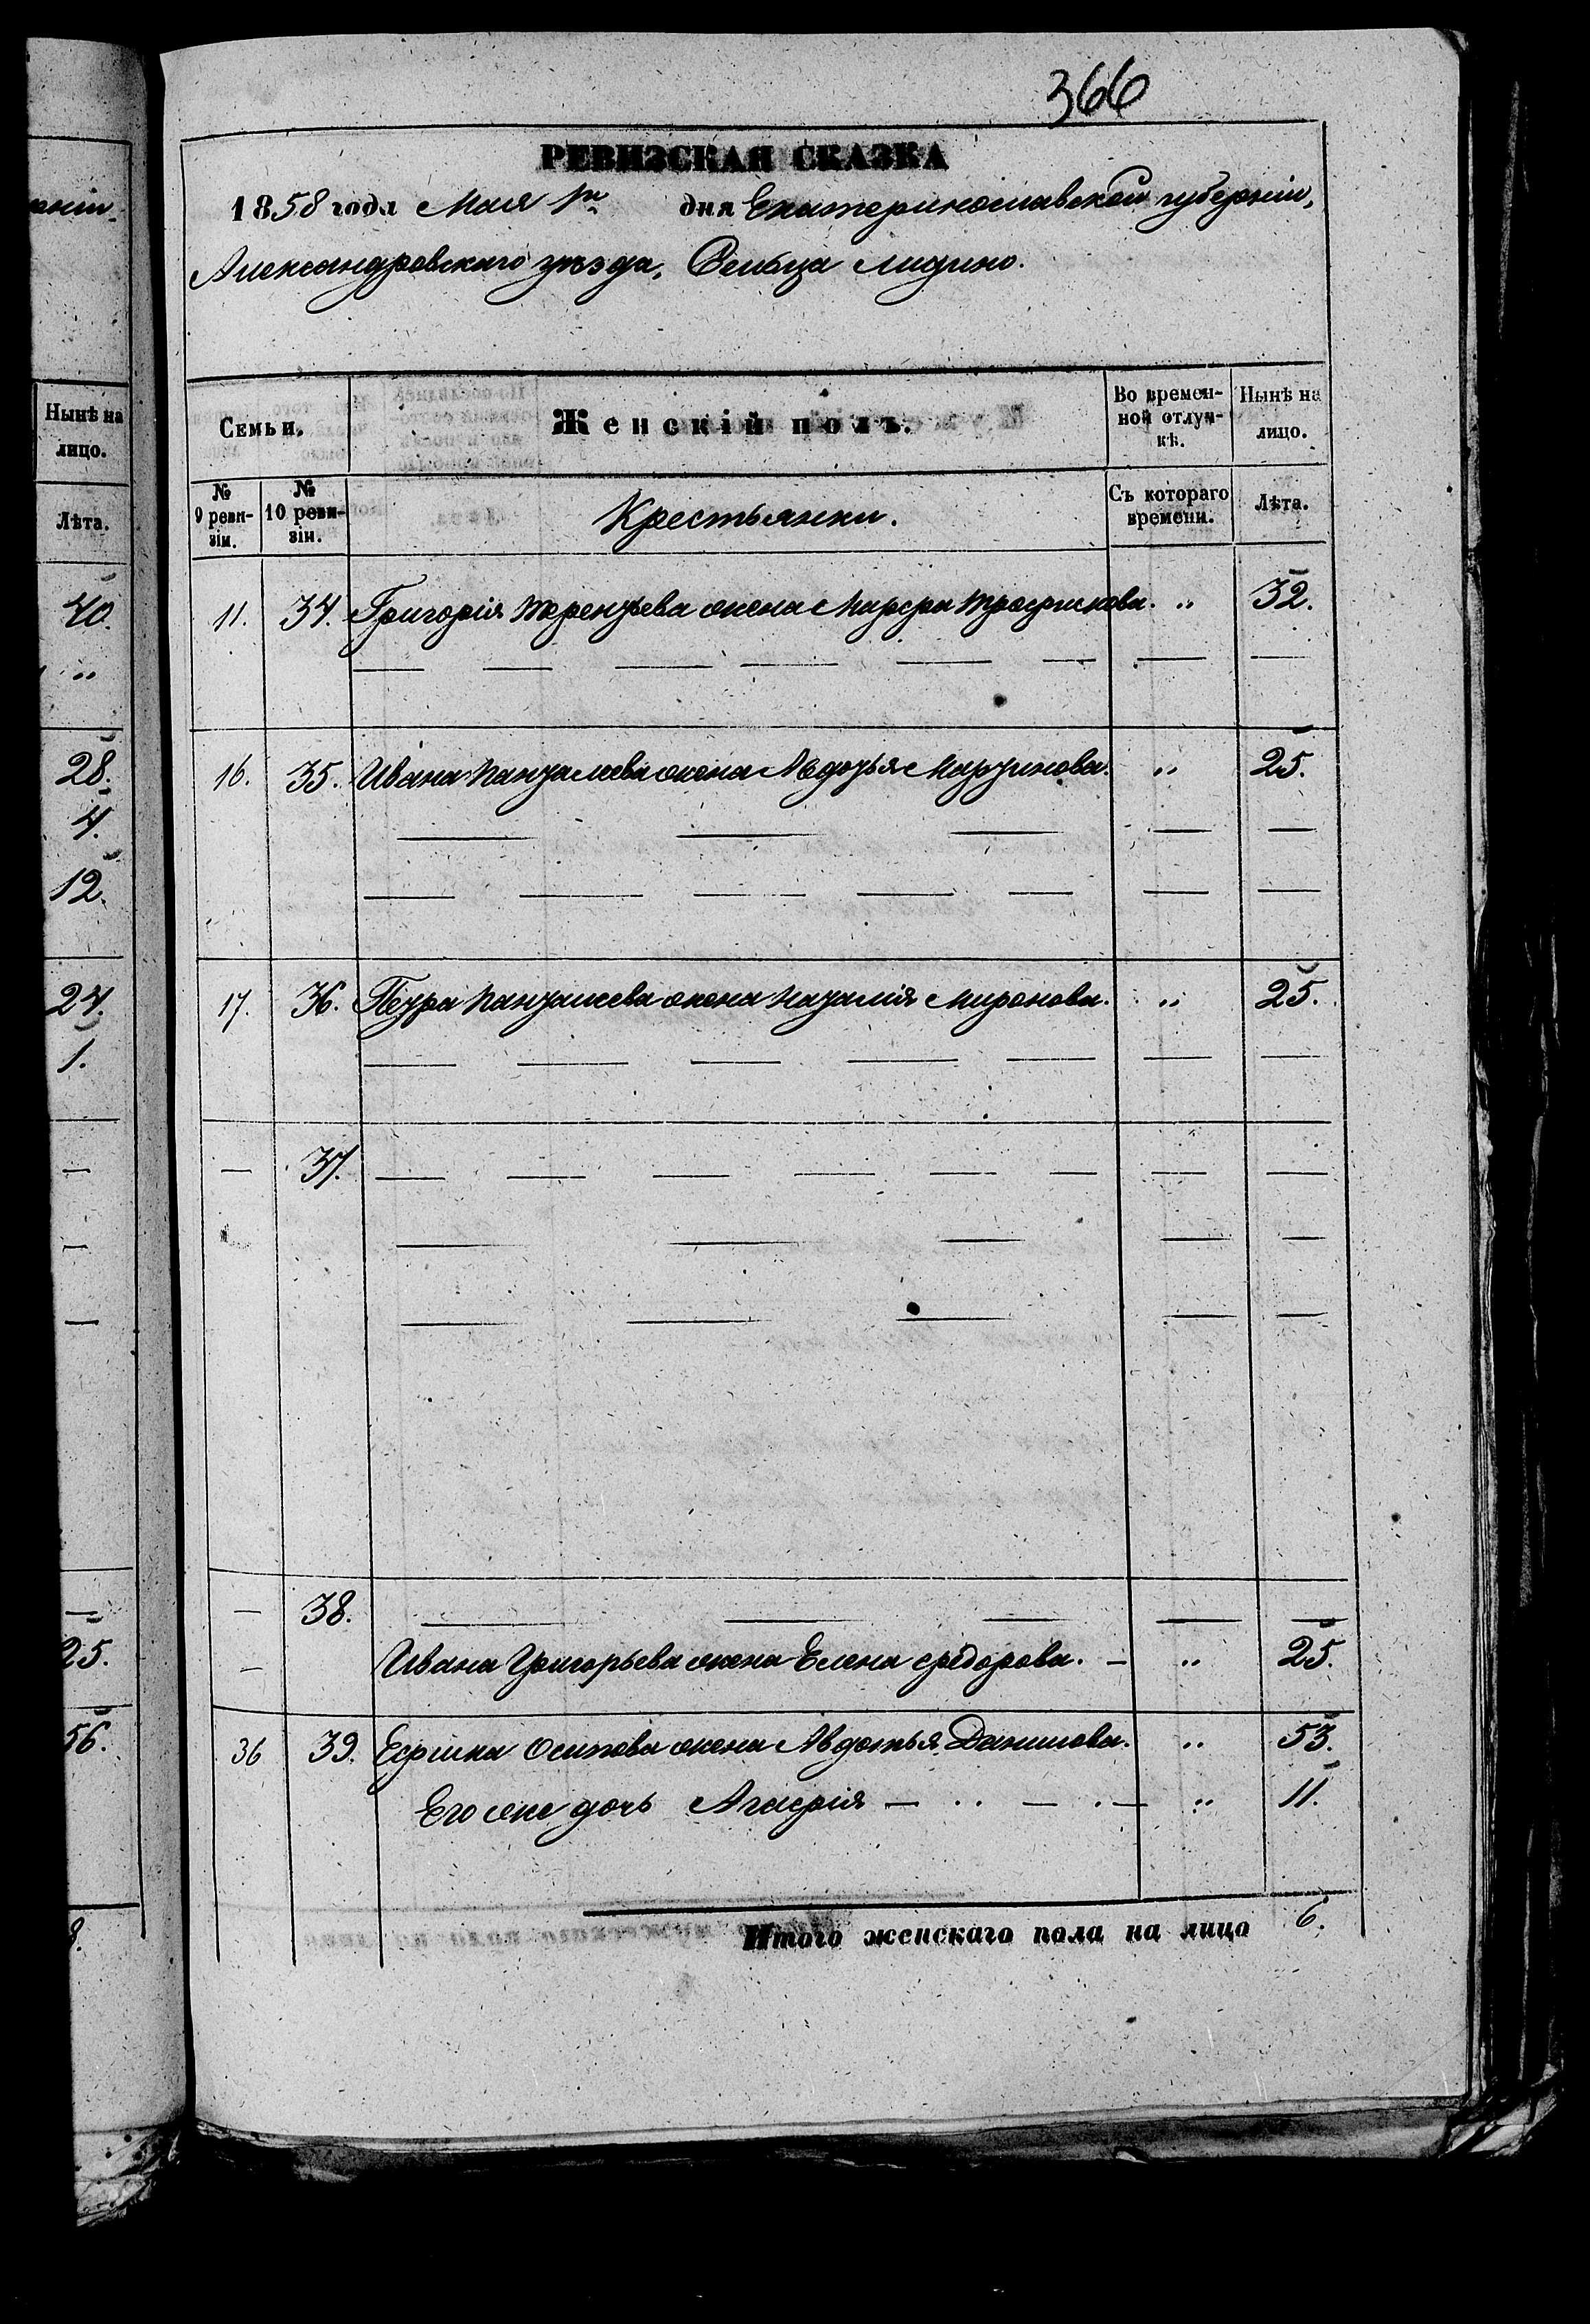 366
РЕВИЗСКАЯ СКАЗКА
1858 года Мая 1го дня Екатеринославской губерніи,
Александровскаго уѣзда, Сельца Лидино.
Семьи.
Женскій полъ.
Во времен-
ной отлуч-
кѣ.
Нынѣ на
лицо.
№
9 реви-
зіи.
№
10 реви-
зіи.
Крестьянки.
Съ котораго
времени.
Лѣта.
11. 34. Григорія Терентьева жена Марфа Трофимова. " 32.
16. 35. Ивана Пантелеева жена Авдотья Мартинова. " 25.
17. 36. Петра Пантелеева жена Наталія Миронова. " 25.
— 37. — — — — — — — —
— 38. — — — — —
— Ивана Григорьева жена Елена Федорова. — " 25.
36 39. Ефима Осипова жена Авдотья Данилова. " 53.
Его же дочь Агафія — " — " 11.
Итого женскаго пола на лицо 6.
Нынѣ на
лицо.
Лѣта.
40.
"
28.
4.
12.
24.
1.
—
—
—
—
25.
56.
8.